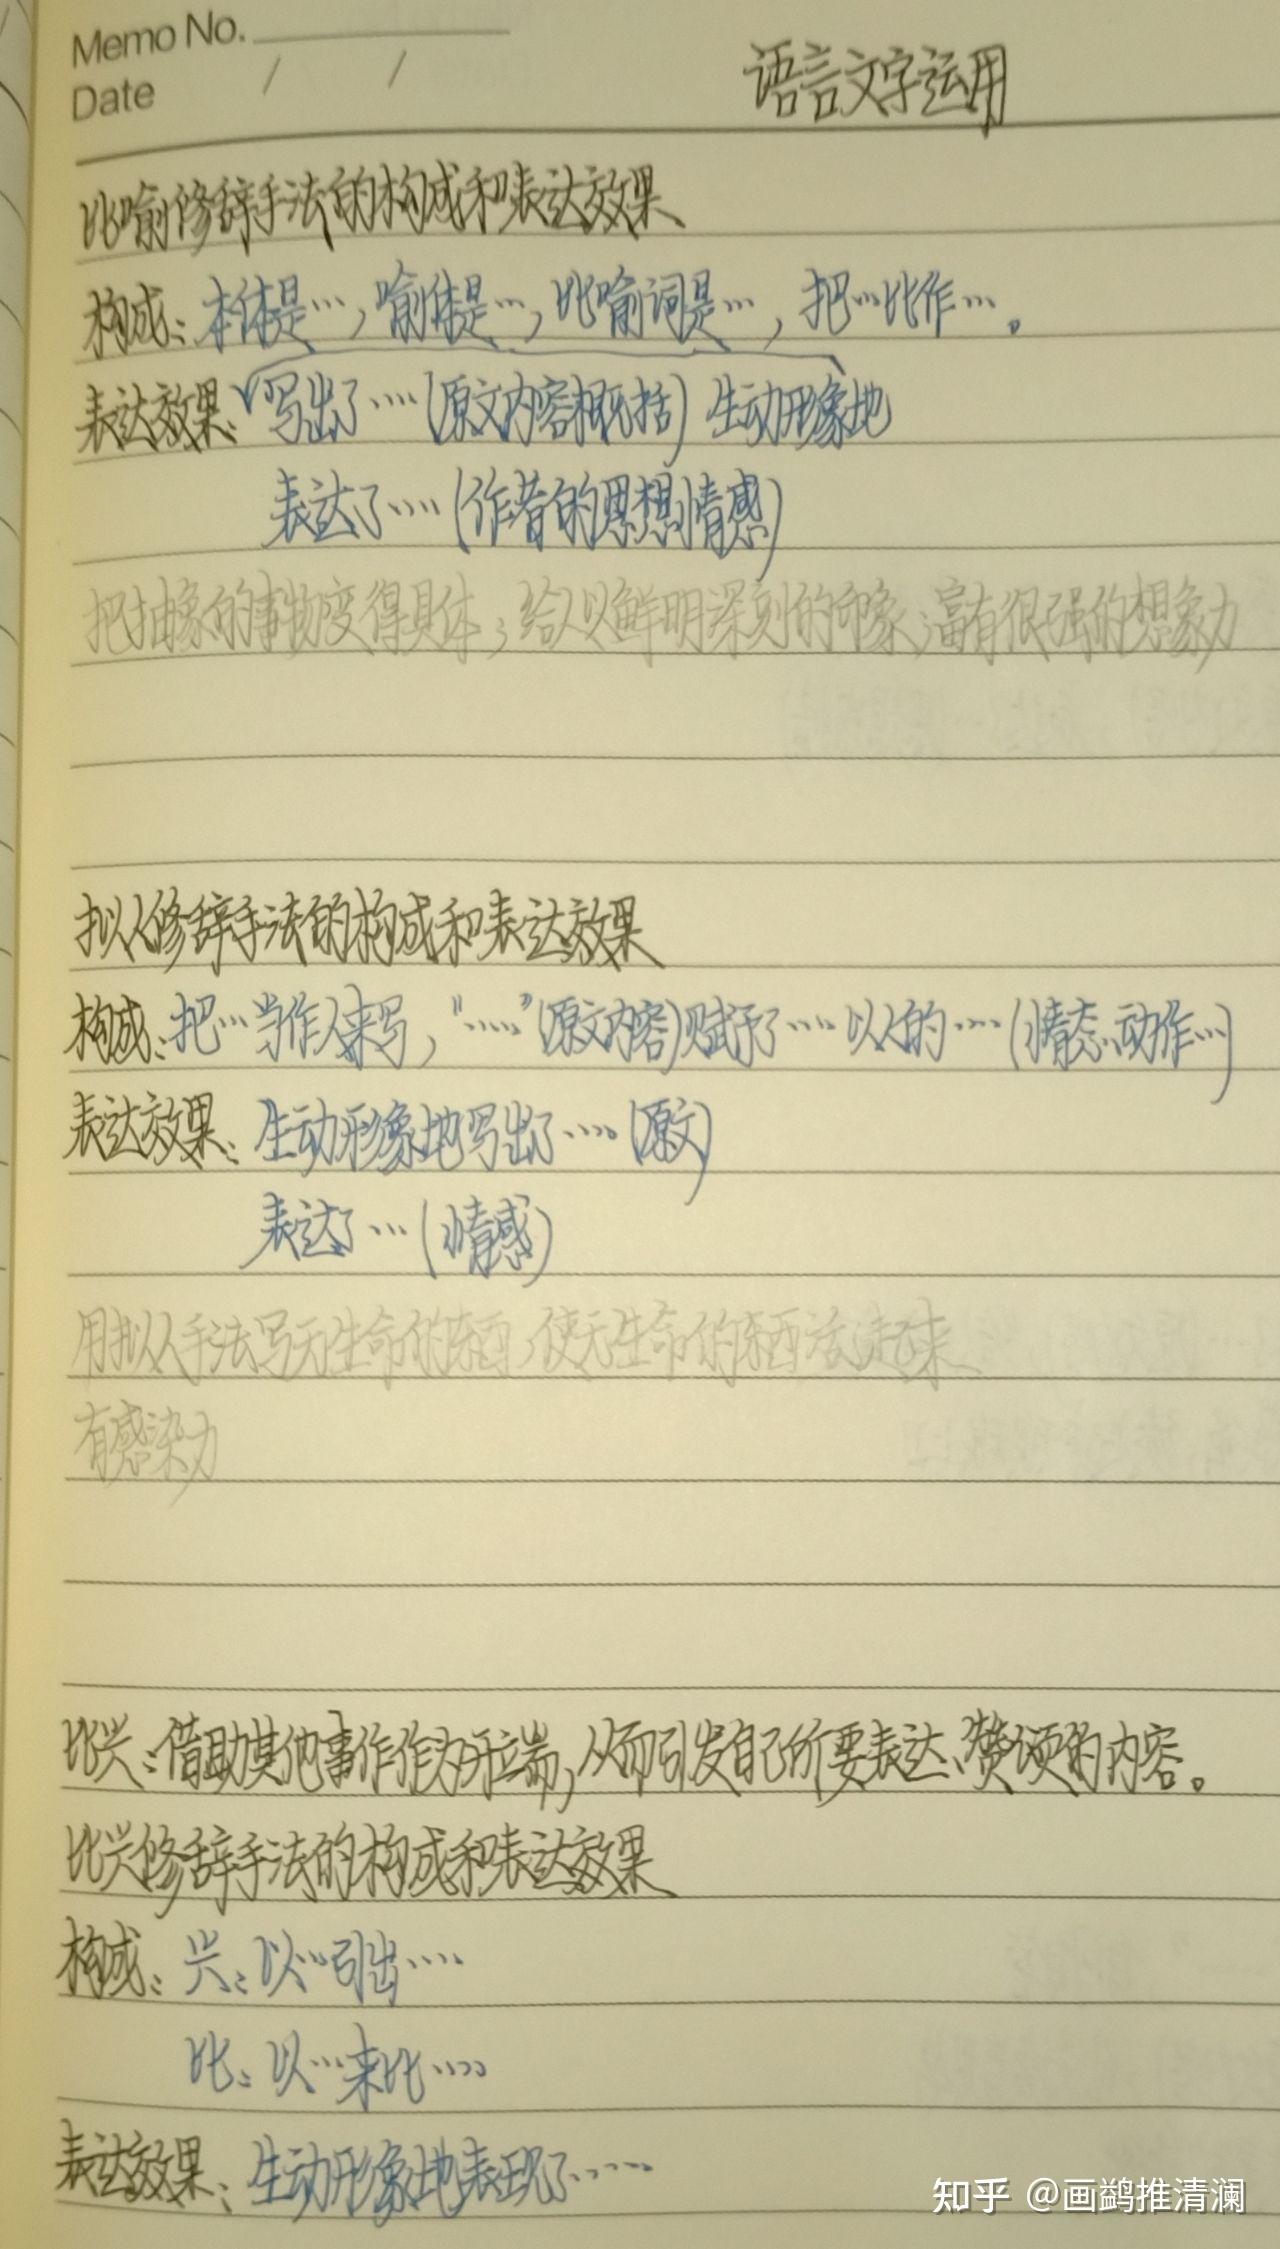 Memo No.
Date / /
语言文字运用
比喻修辞手法的构成和表达效果
构成：本体是…，喻体是…，比喻词是…，把…比作…。
表达效果：写出了……(原文内容概括) 生动形象地
表达了……(作者的思想情感)
把抽象的事物变得具体；给人以鲜明深刻的印象；富有很强的想象力
拟人修辞手法的构成和表达效果
构成：把…当作人来写，“……”(原文内容)赋予了……以人的……(情态、动作…)
表达效果：生动形象地写出了……(原文)
表达了…(情感)
用拟人手法写无生命的东西，使无生命的东西活起来
有感染力
比兴：借助其他事作作为开端，从而引发自己所要表达、赞颂的内容。
比兴修辞手法的构成和表达效果
构成：兴：以…引出……
比：以…来比……
表达效果：生动形象地表现了……
知乎 @画鹢推清澜